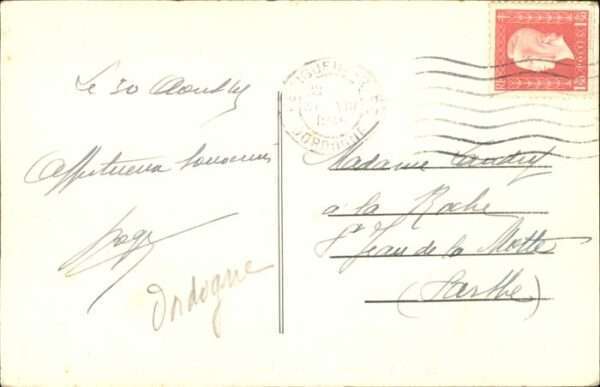 Le 30 Août
Affectueux souvenirs
Dordogne
DORDOGNE
1F50
Madame Landry
à la Roche
St Jean de la Motte
(Sarthe)